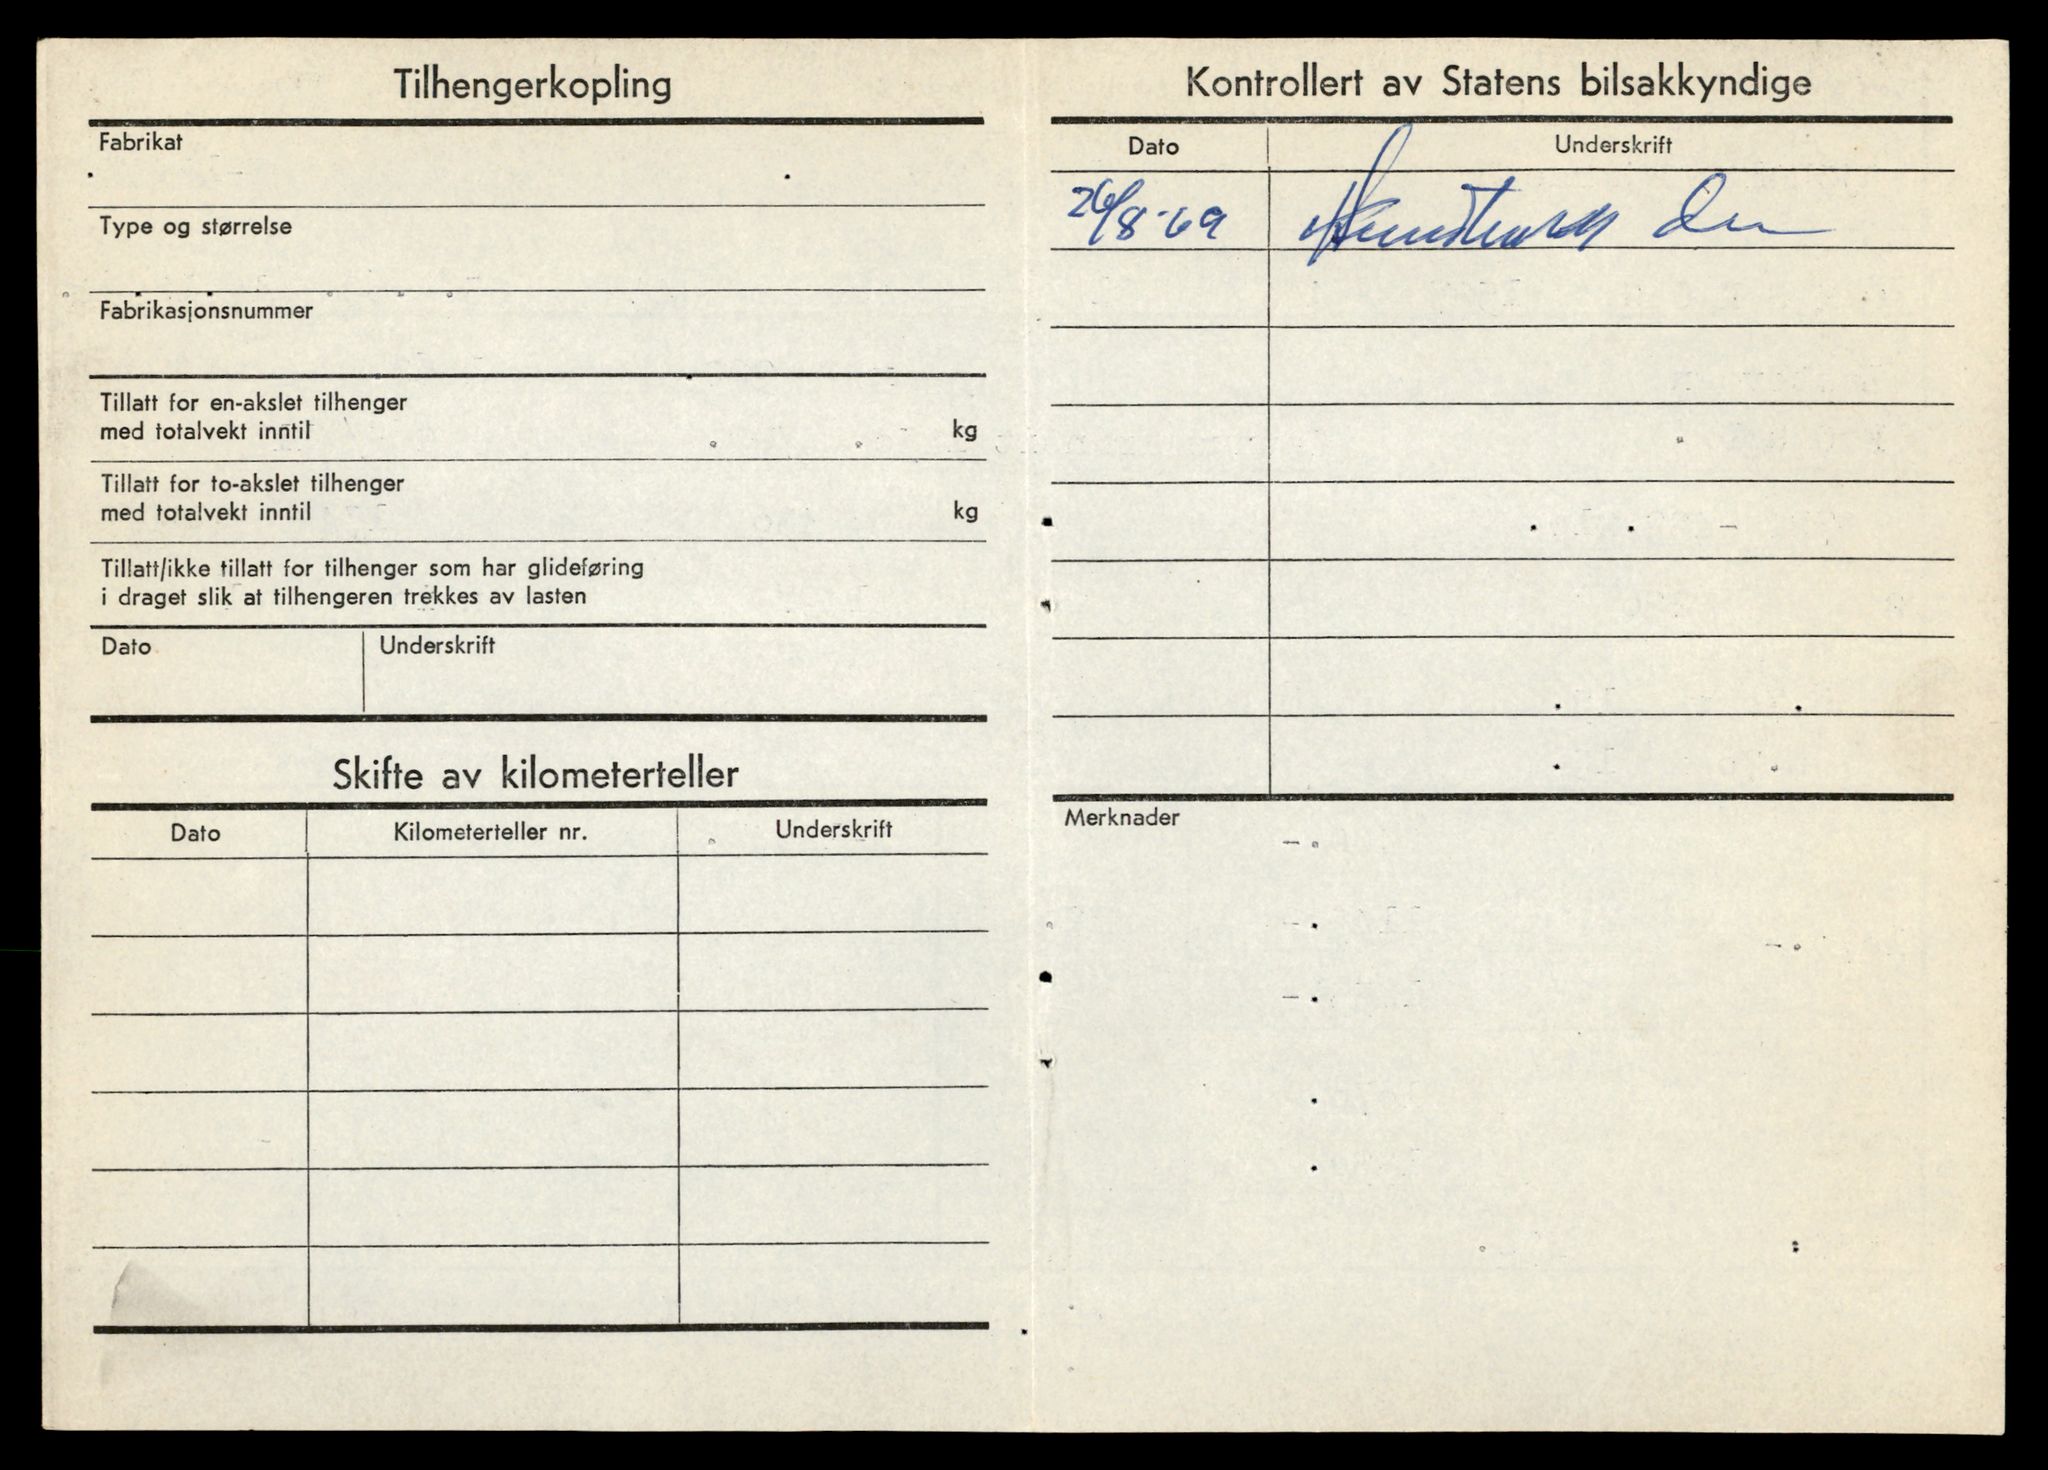 Tilhengerkopling
Fabrikat
Type og størrelse
Fabrikasjonsnummer
Tillatt for en-akslet tilhenger
med totalvekt inntil kg
Tillatt for to-akslet tilhenger
med totalvekt inntil kg
Tillatt/ikke tillatt for tilhenger som har glideføring
i draget slik at tilhengeren trekkes av lasten
Dato Underskrift
Skifte av kilometerteller
Dato Kilometerteller nr. Underskrift
Kontrollert av Statens bilsakkyndige
Dato Underskrift
26/8-69
Merknader